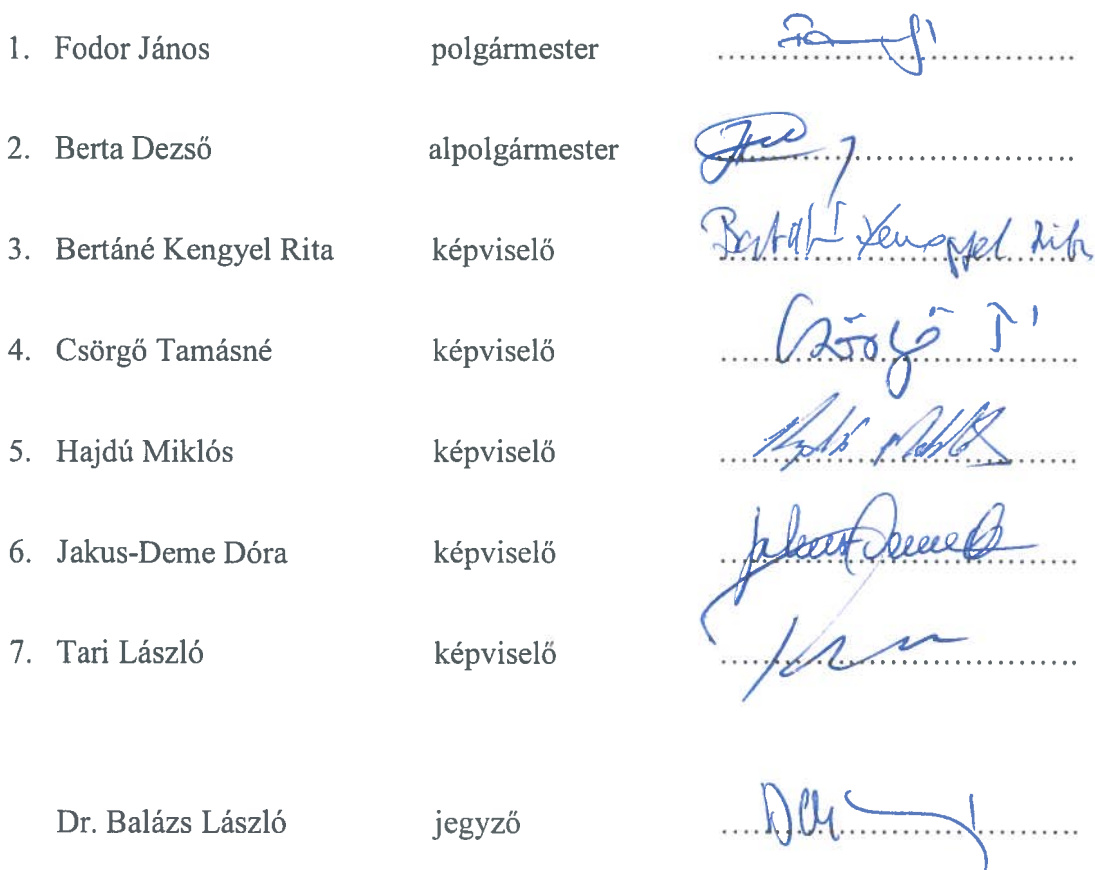 1. Fodor János polgármester
2. Berta Dezső alpolgármester
3. Bertáné Kengyel Rita képviselő Kengyel Rita
4. Csörgő Tamásné képviselő Csörgő T
5. Hajdú Miklós képviselő
6. Jakus-Deme Dóra képviselő
7. Tari László képviselő
Dr. Balázs László jegyző